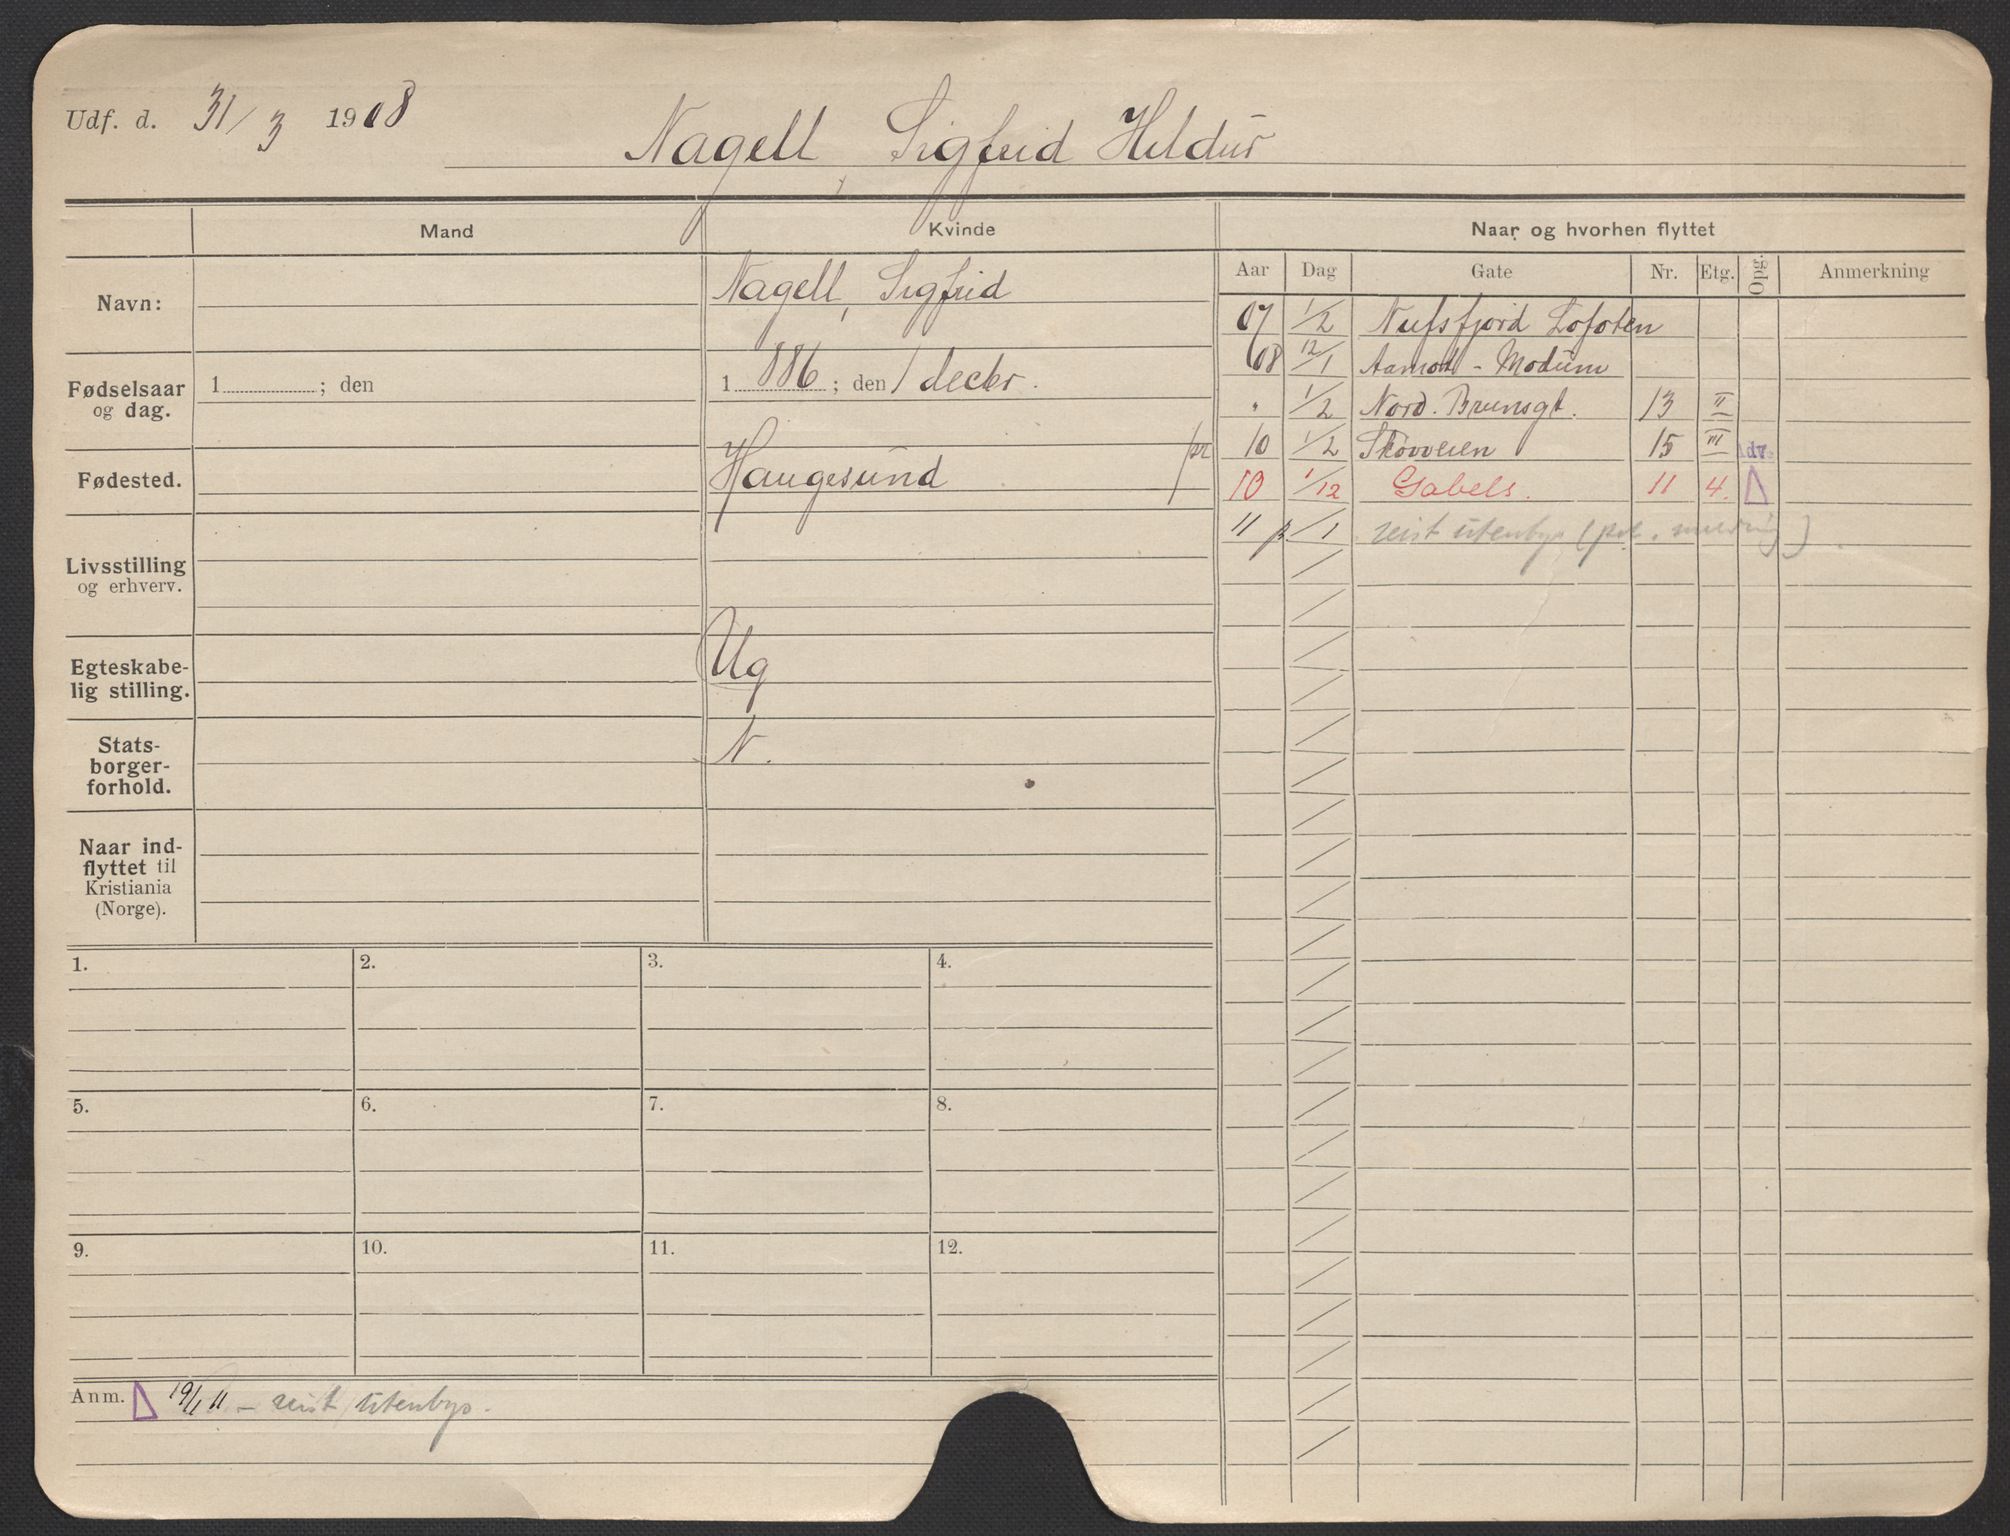 Udf. d. 31/3 1908
Nagell, Sigfrid Hildur
Mand
Kvinde
Naar og hvorhen flyttet
Aar Dag Gate Nr. Etg. Opg. Anmerkning
Navn:
Nagell, Sigfrid
Fødselsaar og dag.
1 ; den
1 886 ; den 1 decbr.
Fødested.
Haugesund
Livsstilling og erhverv.
Egteskabe-
lig stilling.
Ug
Stats-
borger-
forhold.
N.
Naar ind-
flyttet til
Kristiania
(Norge).
07 1/2 Nufsfjord Lofoten
08 12/1 Aamodt - Modum
" 1/2 Nord. Brunsgt. 13 II
pr 10 1/2 Skovveien 15 III Adr.
10 1/12 Gabels. 11 4.
11 /1 reist utenbys (pol. meldning)
1. 2. 3. 4.
5. 6. 7. 8.
9. 10. 11. 12.
Anm. 19/1 11 - reist utenbys.